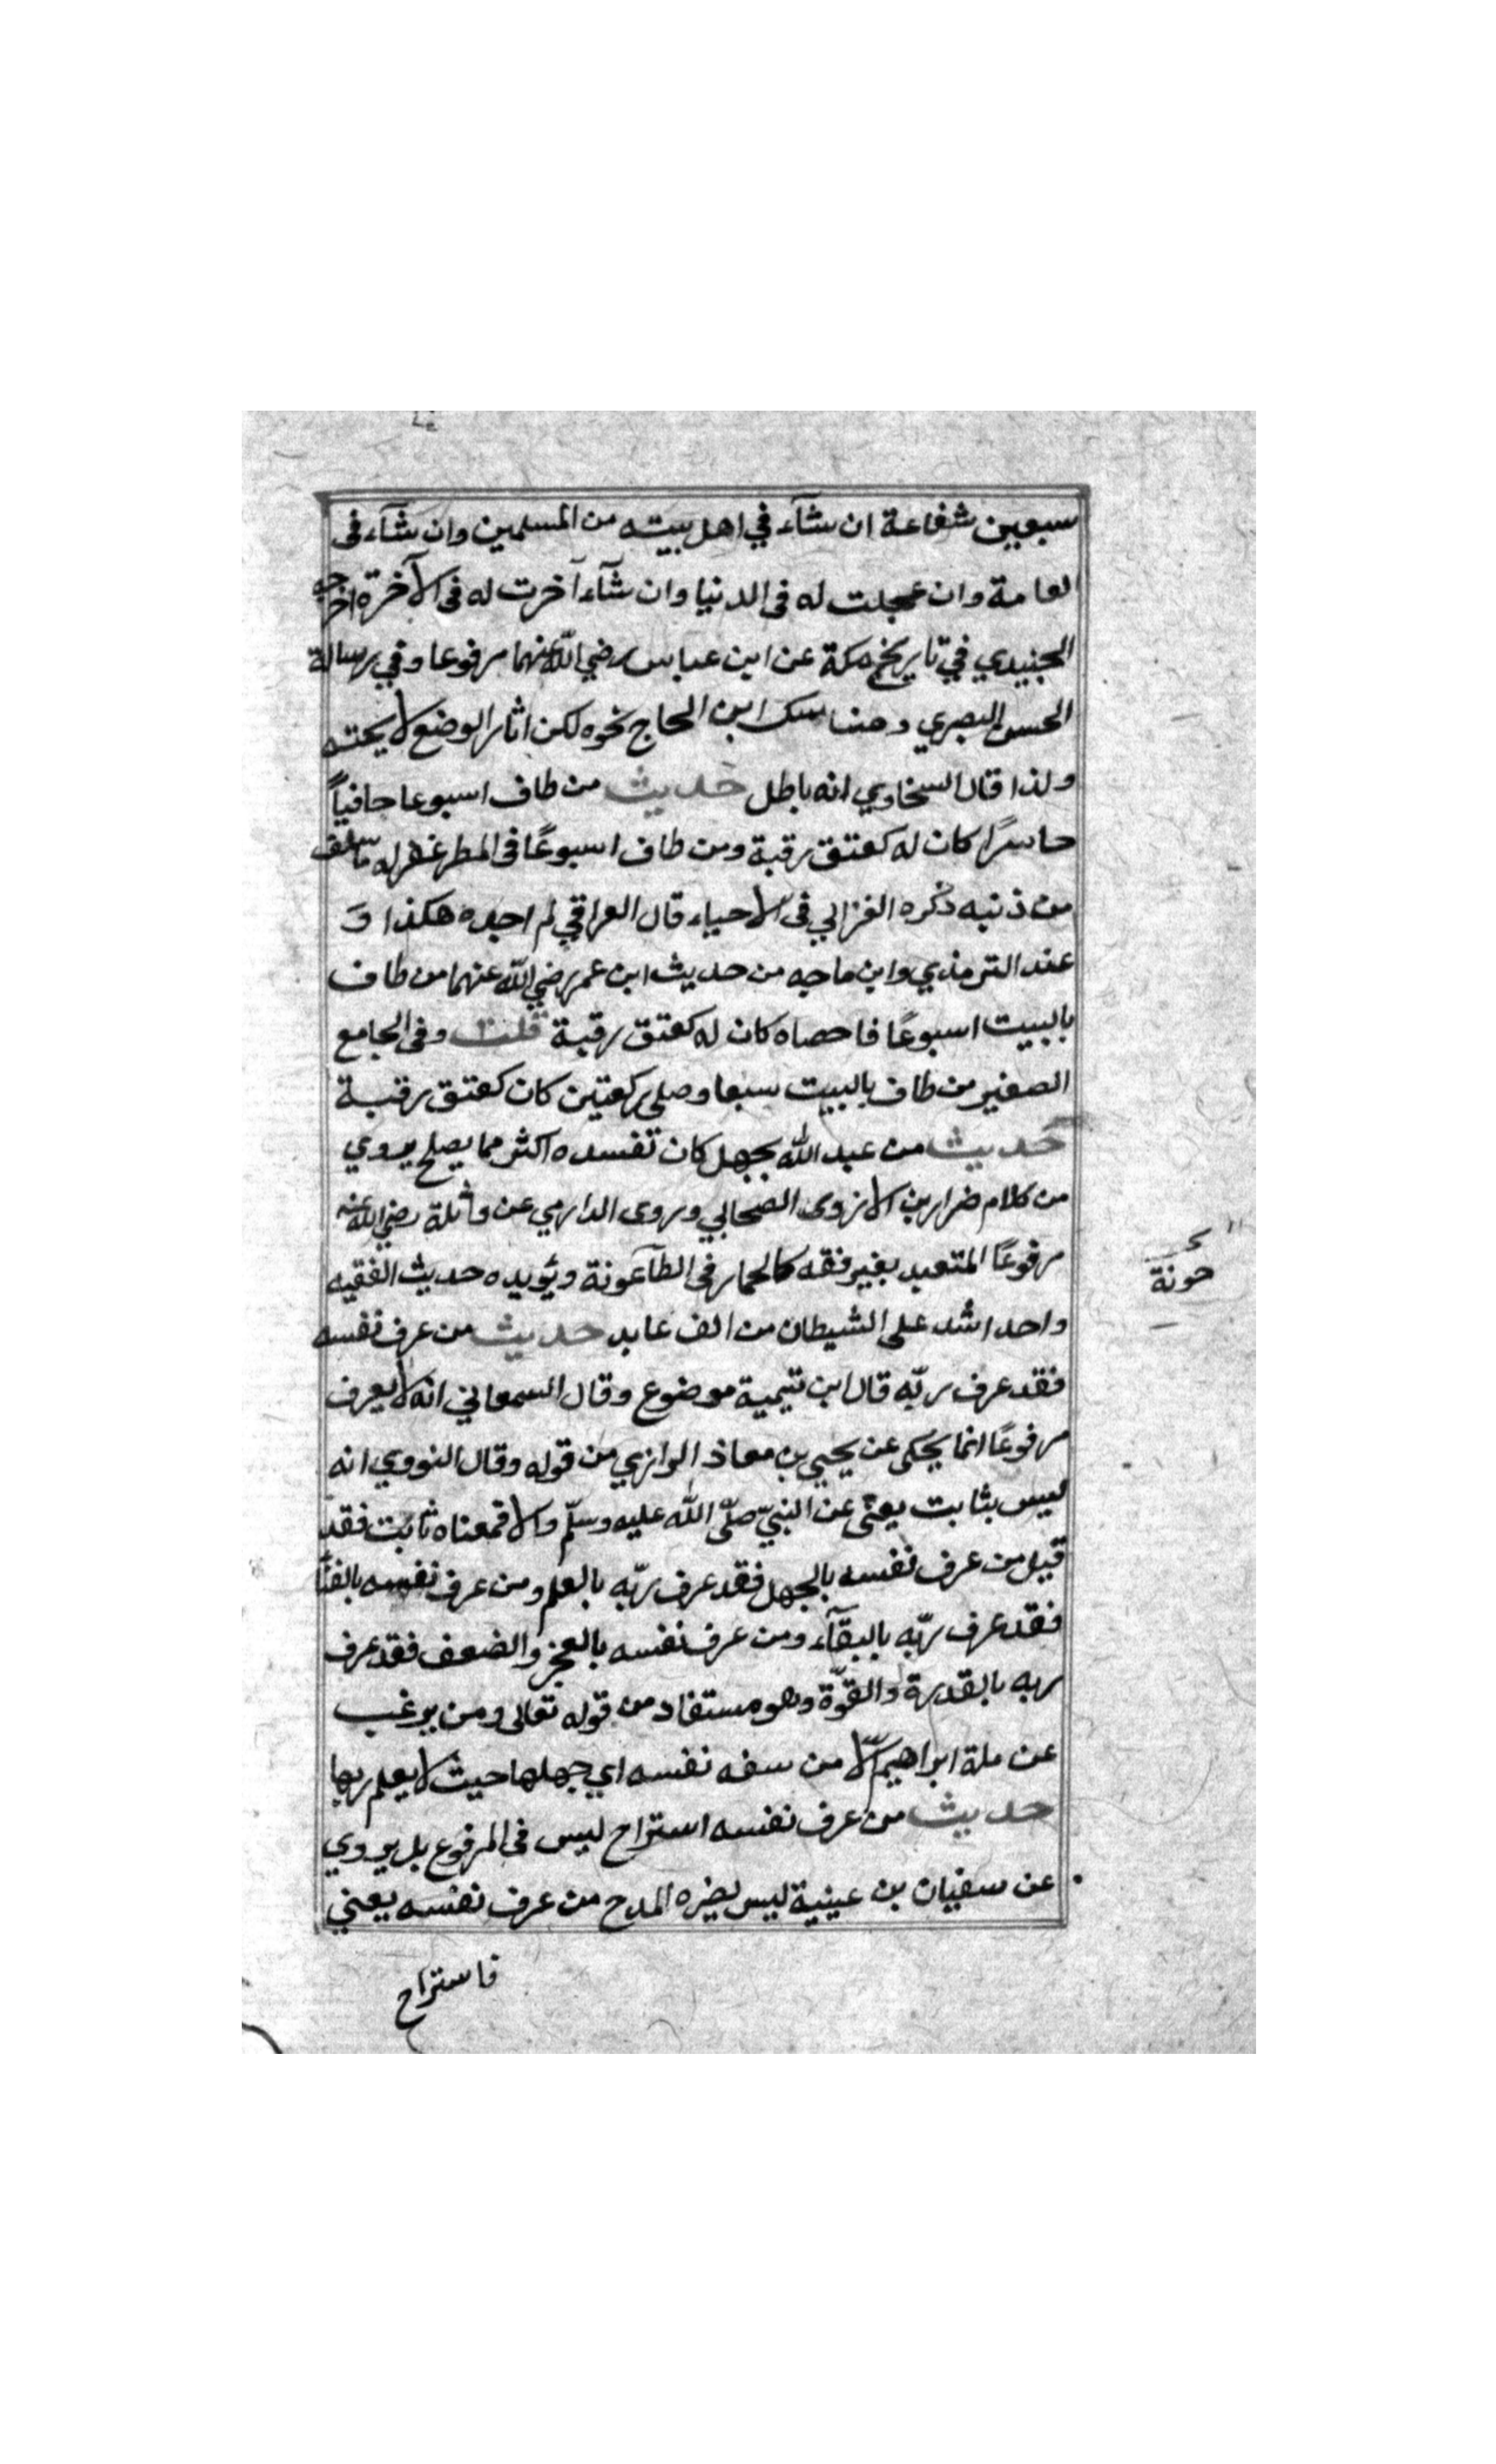 سبعين شفاعة ان شآء في اهل بيته من المسلمين وان شآء فى
العامة وان عجلت له فى الدنيا وان شآء آخرت له فى الآخرة اخرجه
الجنيدي في تاريخ مكة عن ابن عباس رضي الله عنهما مرفوعا وفي رسالة
الحسن البصري ومناسك ابن الحاج نحوه لكن اثار الوضع لايحته
ولذا قال السخاوي انه باطل حديث من طاف اسبوعا حافياً
حاسرًا كان له كعتق رقبة ومن طاف اسبوعًا فى المطر غفر له ما سلف
من ذنبه ذكره الغزالي فى الاحياء قال العراقي لم اجده هكذا وَ
عند الترمذي وابن ماجه من حديث ابن عمر رضي الله عنهما من طاف
بالبيت اسبوعًا فاحصاه كان له كعتق رقبة قلت وفى الجامع
الصغير من طاف بالبيت سبعا وصلى ركعتين كان كعتق رقبة
حديث من عبد الله بجهل كان تفسده اكثر مما يصلح يروي
من كلام ضرار بن الازوى الصحابي وروى الدارمي عن واثلة رضي الله عنه
مرفوعًا المتعبد بغير فقه كالحمار فى الطآعونة ويؤيده حديث الفقيه
حونة
واحد اشد على الشيطان من الف عابد حديث من عرف نفسه
فقد عرف ربّه قال ابن تيمية موضوع وقال السمعاني انه لا يعرف
مرفوعًا انما يحكى عن يحيي بن معاذ الرازي من قوله وقال النووي انه
ليس بثابت يعنى عن النبيّ صلّى الله عليه وسلّم والا فمعناه ثابت فقد
قيل من عرف نفسه بالجهل فقد عرف ربّه بالعلم ومن عرف نفسه بالفنآ
فقد عرف ربّه بالبقآء ومن عرف نفسه بالعجز والضعف فقد عرف
ربه بالقدرة والقوّة وهو مستفاد من قوله تعالى ومن يرغب
عن ملة ابراهيم الّا من سفه نفسه اي جهلها حيث لا يعلم ربها
حديث من عرف نفسه استراح ليس فى المرفوع بل يروي
عن سفيان بن عينية ليس يضره المدح من عرف نفسه يعني
فاستراح